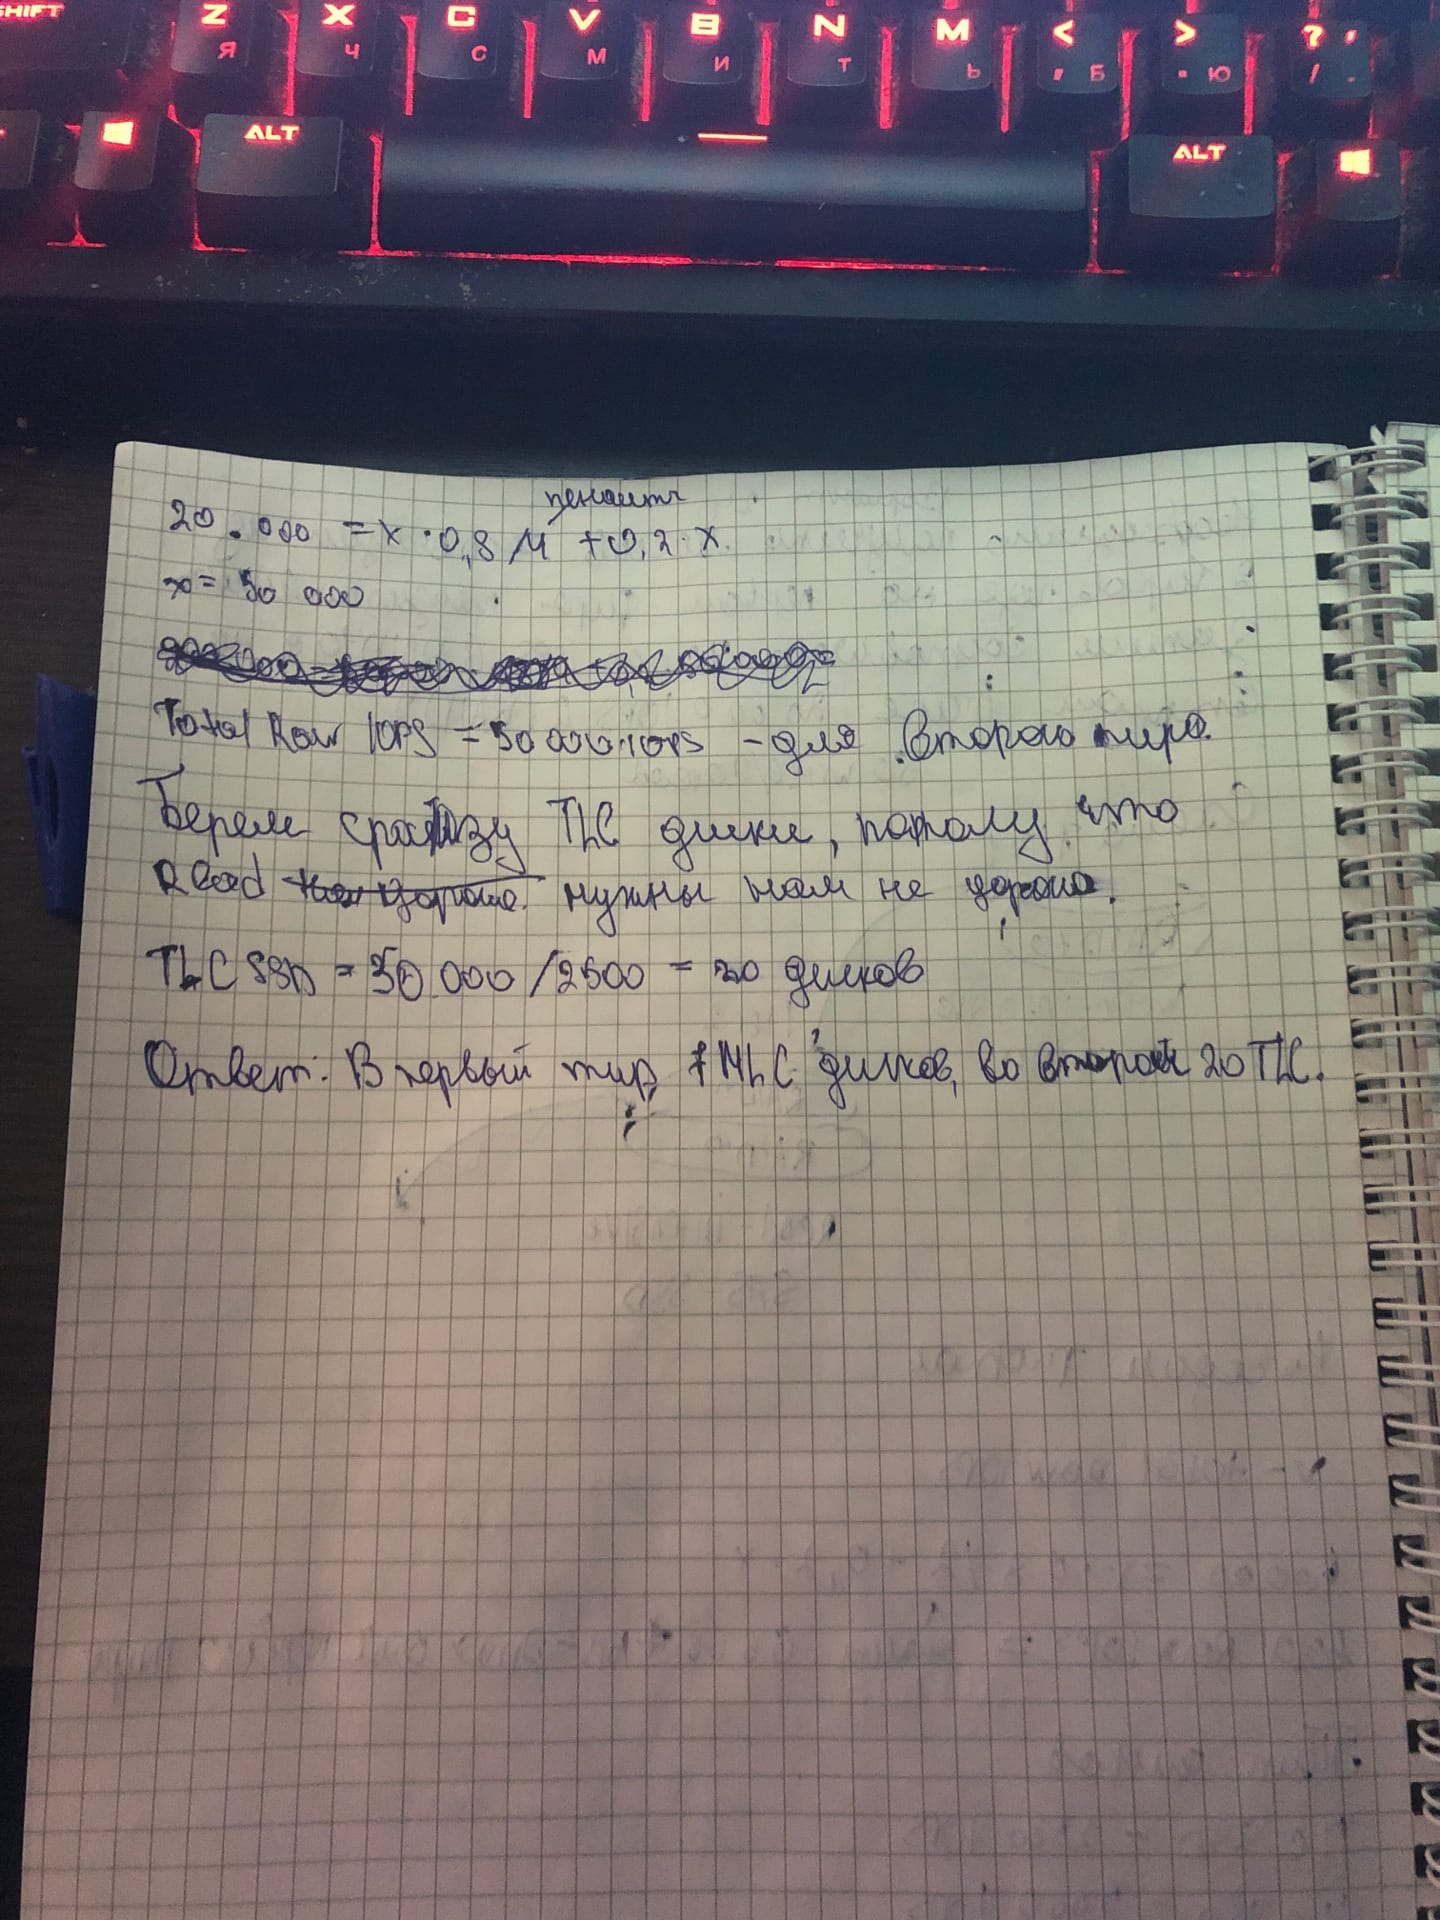 SHIFT Z Я X Ч C С V М B И N Т M Ь < , Б > . Ю ? , / .
ALT ALT
пенальти
20.000 = x · 0,8 / 4 + 0,2 · x
x = 50 000
Total Raw IOPS = 50 000 iops - для второго тира.
Берем сразу TLC диски, потому что
Read нужны нам не дорого.
TLC SSD = 50.000 / 2500 = 20 дисков
Ответ: В первый тир, MLC дисков, во второй 20 TLC.